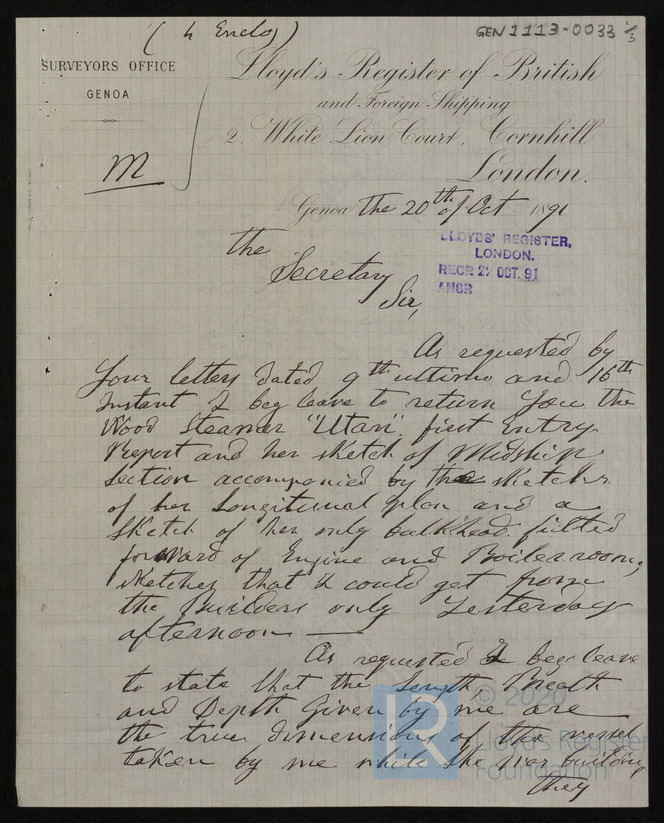 (4 Enclos)
GEN1113-0033 1/3
SURVEYORS OFFICE
GENOA
M
Lloyd's Register of British
and Foreign Shipping
2, White Lion Court, Cornhill
London.
Genoa the 20th of Oct 1891
LLOYDS' REGISTER,
LONDON.
RECR 2 OCT. 91
ANSR
the
Secretary
Sir,
As requested by
Your letters dated 9th ultimo and 16th
Instant I beg leave to return You the
Wood Steamer "Utari" first Entry
Report and her sketch of Midship
section accompanied by the sketch
of her Longitunal plan and a
sketch of her only bulkhead fitted
forward of Engine and Boiler room,
sketches that I could get from
the Builders only Yesterday
afternoon —
As requested I beg leave
to state that the Length, Breath
and Depth Given by me are
the true dimensions of the vessel
taken by me while she was building
they
© 2020
Lloyd's Register
Foundation
LR